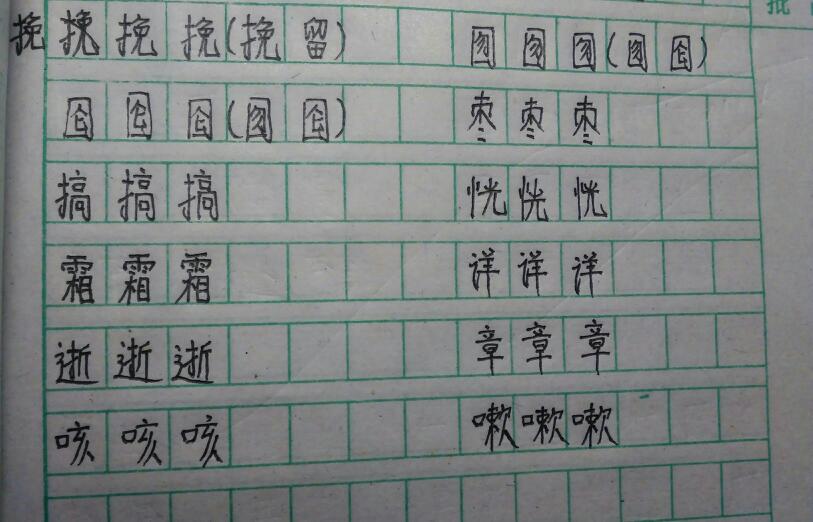 批
挽挽挽挽(挽留) 囫囫囫(囫囵)
囵囵囵(囫囵) 枣枣枣
搞搞搞 恍恍恍
霜霜霜 详详详
逝逝逝 章章章
咳咳咳 嗽嗽嗽